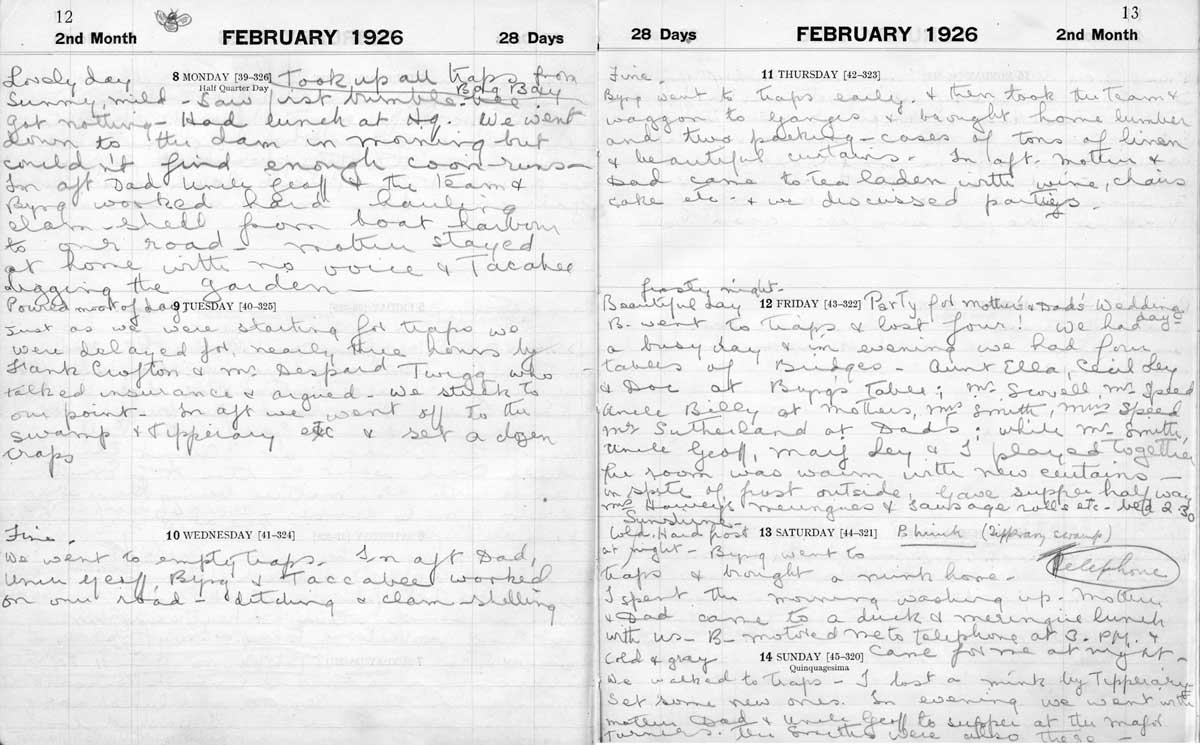 12
2nd Month FEBRUARY 1926 28 Days
Lovely day 8 MONDAY [39-326] Took up all traps from
Half Quarter Day Byng Bay
Sunny, mild - Saw first bumble-bee.
Got nothing - Had lunch at Hq. We went
down to the dam in morning but
couldn't find enough coon-runs -
In aft Dad, Uncle Geoff & the Team &
Byng worked hard hauling
clam-shell from boat harbour
to our road - mother stayed
at home with no voice & Tacabee
digging the garden -
Poured most of day 9 TUESDAY [40-325]
Just as we were starting for traps we
were delayed for nearly three hours by
Frank Crofton & Mr Despard Twigg who
talked insurance & argued - we stuck to
our point - In aft we went off to the
swamp & Tipperary etc & set a dozen
traps
Fine - 10 WEDNESDAY [41-324]
We went to empty traps - In aft Dad,
Uncle Geoff, Byng & Taccabee worked
on our road - ditching & clam-shelling
13
28 Days FEBRUARY 1926 2nd Month
Fine. 11 THURSDAY [42-323]
Byng went to traps early. & then took the Team &
waggon to Ganges & brought home lumber
and two packing-cases of tons of linen
& beautiful curtains - In aft. mother &
Dad came to tea laden with wine, chairs
cake etc - & we discussed parties -
frosty night -
Beautiful day 12 FRIDAY [43-322] Party for mother's & Dad's Wedding
day -
B - went to traps & lost four! We had
a busy day & in evening we had four
tables of Bridge - Aunt Ella, Cecil Ley
& Doc at Byng's table; Mr. Scovell, Mr. Speed
Uncle Billy at mothers, Mrs Smith, Mrs Speed
Mr Sutherland at Dad's; while Mr Smith,
Uncle Geoff, Marj Ley & I played together
the room was warm with new curtains -
in spite of frost outside, Gave supper half way
Mrs Harvey's meringues & sausage rolls etc - bed 2 30
Sunshine -
Cold. Hard frost 13 SATURDAY [44-321] B 1 mink (Tipperary swamp)
at night - Byng went to Telephone
traps & brought a mink home -
I spent the morning washing up - Mother
& Dad came to a duck & meringue lunch
with us - B - motored me to telephone at 3. P.M. &
came for me at night -
Cold & gray 14 SUNDAY [45-320]
Quinquagesima
We walked to traps - I lost a mink by Tipperary
Set some new ones. In evening we went with
mother Dad & Uncle Geoff to supper at the Major
Turners. the Smiths were also there -